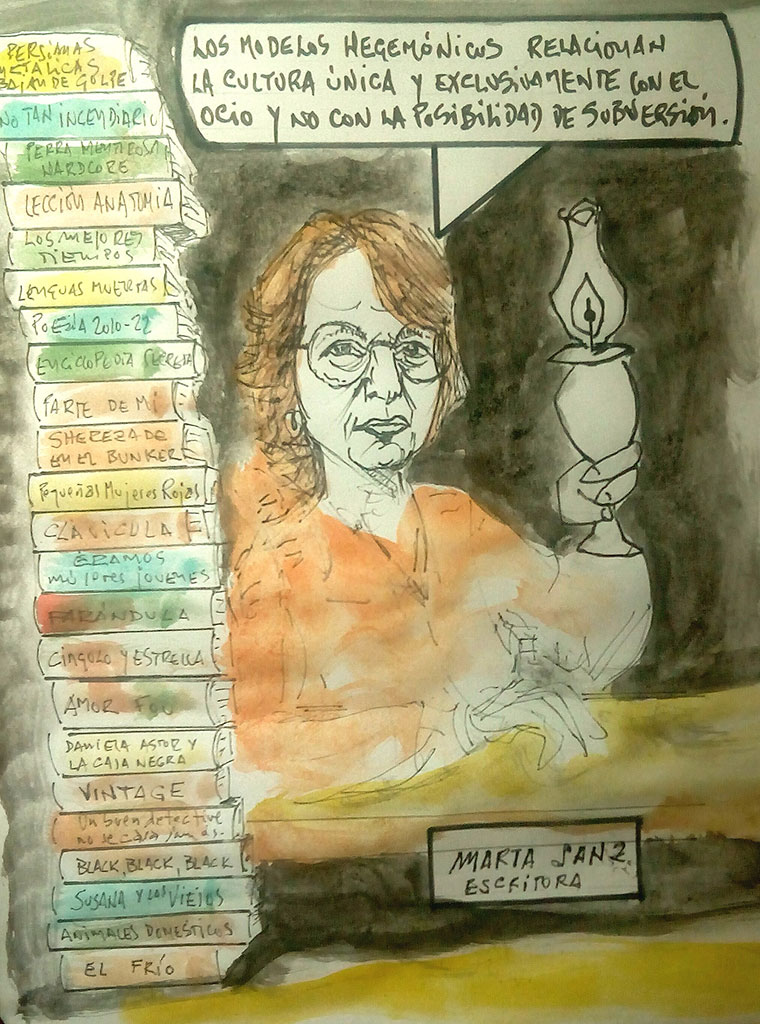 LOS MODELOS HEGEMÓNICOS RELACIONAN
LA CULTURA ÚNICA Y EXCLUSIVAMENTE CON EL
OCIO Y NO CON LA POSIBILIDAD DE SUBVERSIÓN.
PERSIANAS
METÁLICAS
BAJAN DE GOLPE
NO TAN INCENDIARIO
PERRA MENTIROSA
HARDCORE
LECCIÓN ANATOMIA
LOS MEJORES
TIEMPOS
LENGUAS MUERTAS
POESÍA 2010-22
ENCICLOPEDIA SECRETA
PARTE DE MÍ
SHEREZADE
EN EL BUNKER
Pequeñas Mujeres Rojas
CLAVICULA
ÉRAMOS
mujeres jóvenes
FARÁNDULA
Cíngulo Y ESTRELLA
AMOR FOU
DANIELA ASTOR Y
LA CAJA NEGRA
VINTAGE
Un buen detective
no se casa jamás.
BLACK, BLACK, BLACK
SUSANA Y LOS VIEJOS
ANIMALES DOMÉSTICOS
EL FRÍO
MARTA SANZ
ESCRITORA